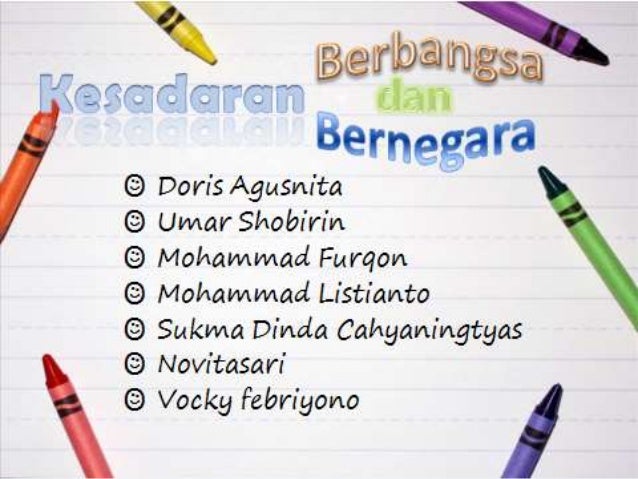 Kesadaran
Berbangsa
dan
Bernegara
☺ Doris Agusnita
☺ Umar Shobirin
☺ Mohammad Furqon
☺ Mohammad Listianto
☺ Sukma Dinda Cahyaningtyas
☺ Novitasari
☺ Vocky febriyono